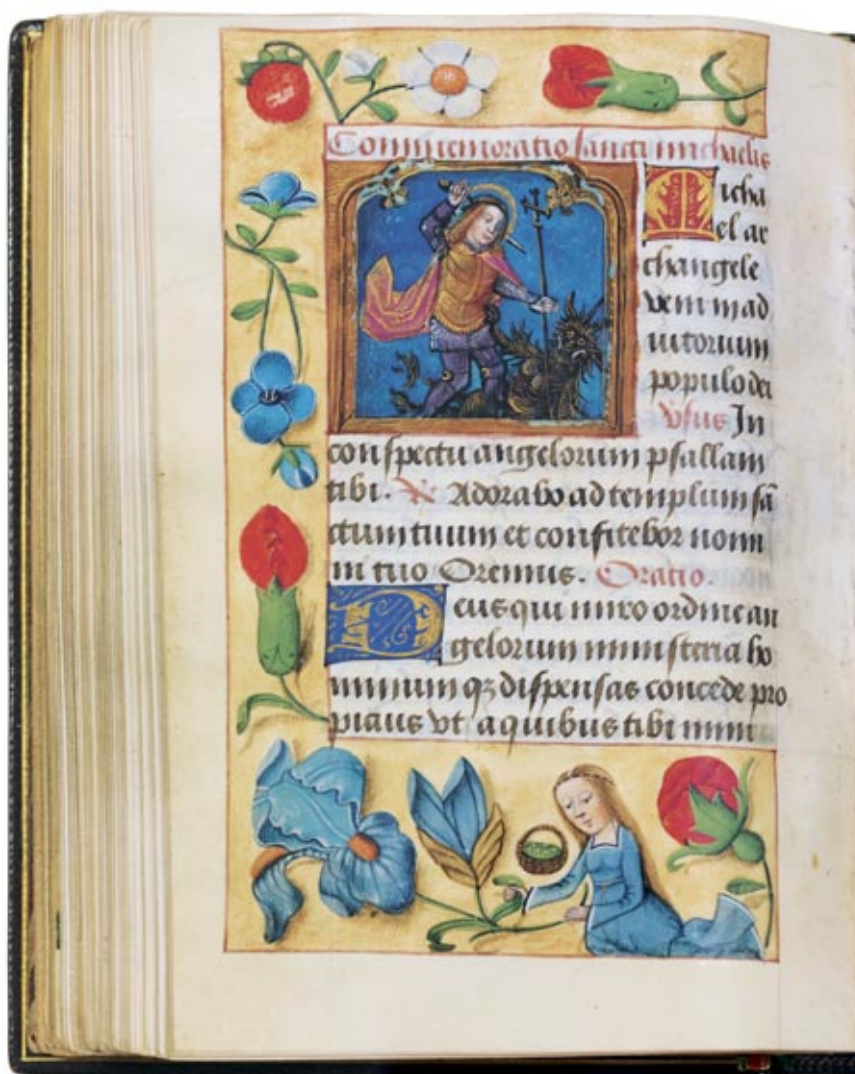 Commemoratio sancti michaelis
Micha
el ar
changele
veni in ad
iutorium
populo dei
Vsus In
conspectu angelorum psallam
tibi. R Adorabo ad templum sā
ctum tuum et confitebor nomi
ni tuo Oremus. Oratio.
Deus qui miro ordine an
gelorum ministeria ho
minum qȝ dispensas concede pro
picius vt a quibus tibi mini